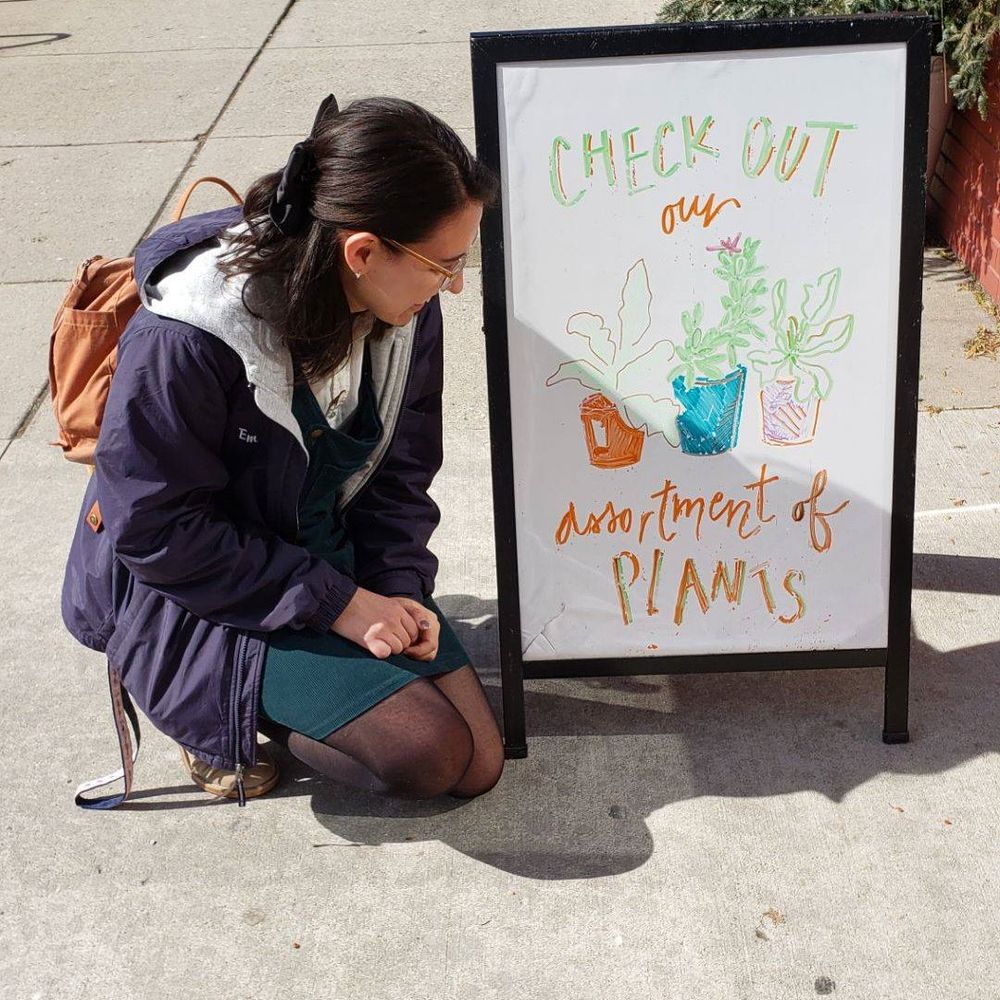 CHECK OUT
our
assortment of
PLANTS
Em